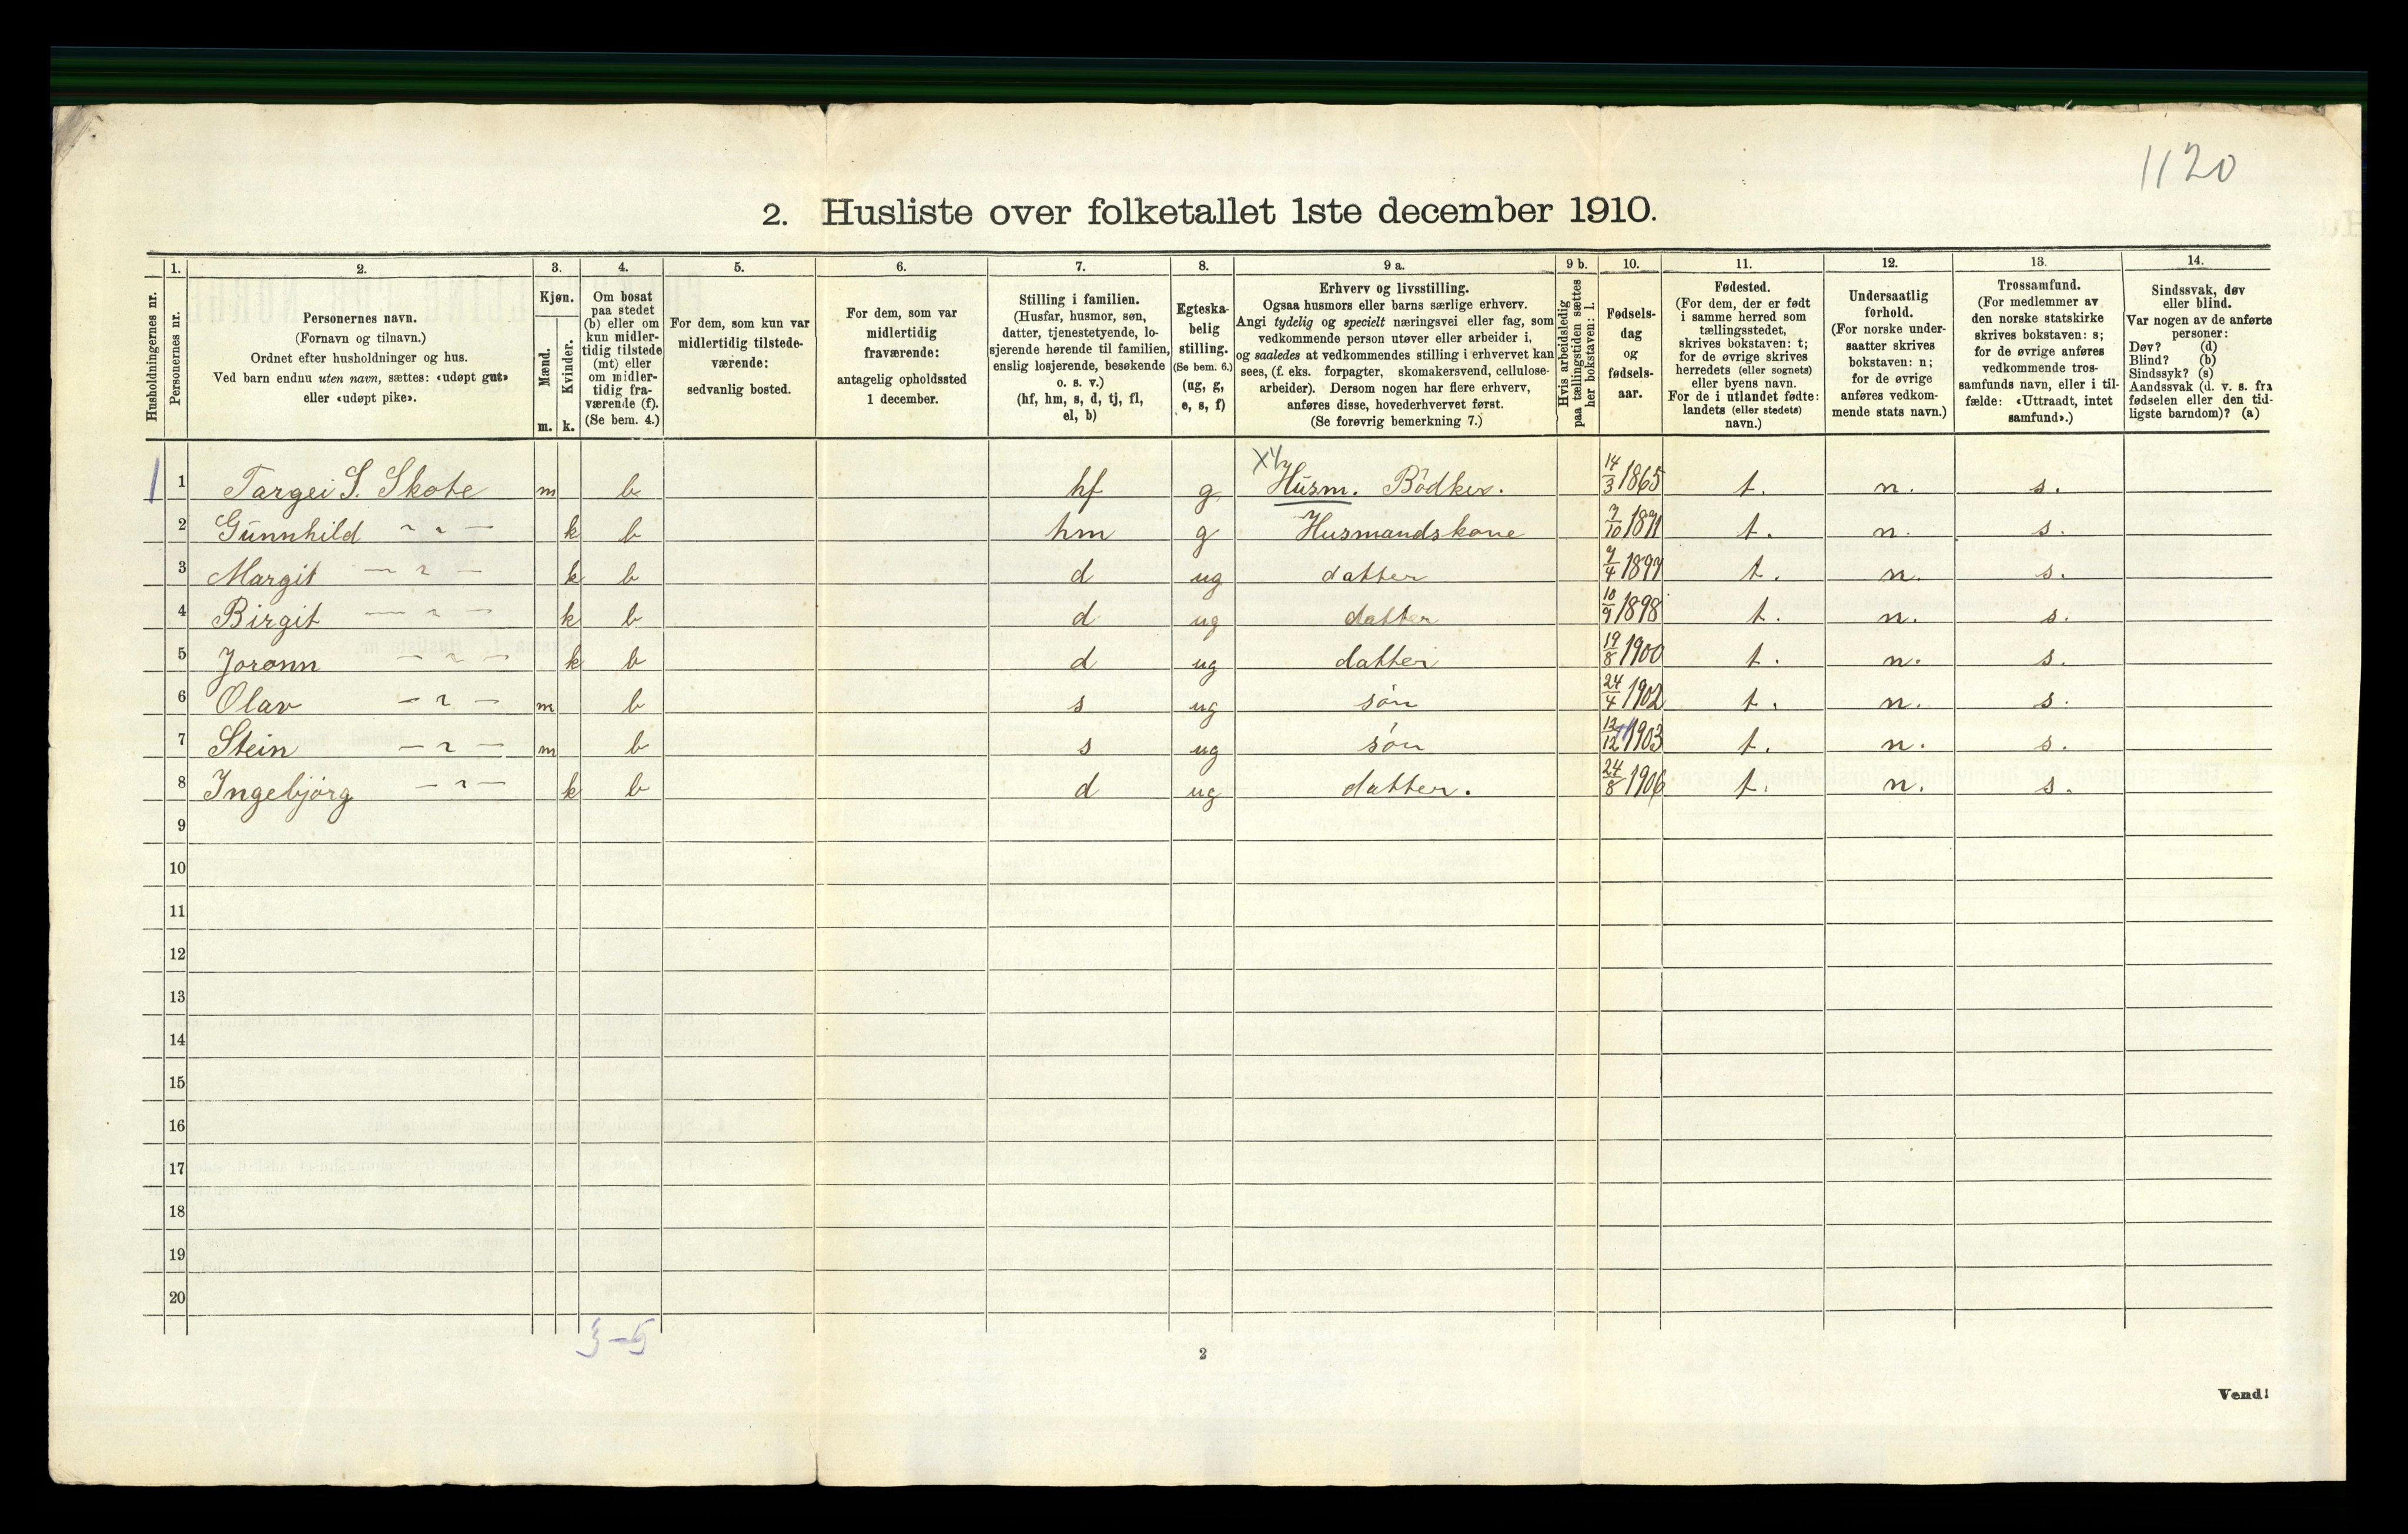 1120
2. Husliste over folketallet 1ste december 1910.
Husholdningernes nr.
1.
Personernes nr.
2.
Personernes navn.
(Fornavn og tilnavn.)
Ordnet efter husholdninger og hus.
Ved barn endnu uten navn, sættes: «udøpt gut»
eller «udøpt pike».
3.
Kjøn.
Mænd.
Kvinder.
m. k.
4.
Om bosat
paa stedet
(b) eller om
kun midler-
tidig tilstede
(mt) eller
om midler-
tidig fra-
værende (f).
(Se bem. 4.)
5.
For dem, som kun var
midlertidig tilstede-
værende:
sedvanlig bosted.
6.
For dem, som var
midlertidig
fraværende:
antagelig opholdssted
1 december.
7.
Stilling i familien.
(Husfar, husmor, søn,
datter, tjenestetyende, lo-
sjerende hørende til familien,
enslig losjerende, besøkende
o. s. v.)
(hf, hm, s, d, tj, fl,
el, b)
8.
Egteska-
belig
stilling.
(Se bem. 6.)
(ug, g,
e, s, f)
9 a.
Erhverv og livsstilling.
Ogsaa husmors eller barns særlige erhverv.
Angi tydelig og specielt næringsvei eller fag, som
vedkommende person utøver eller arbeider i,
og saaledes at vedkommendes stilling i erhvervet kan
sees, (f. eks. forpagter, skomakersvend, cellulose-
arbeider). Dersom nogen har flere erhverv,
anføres disse, hovederhvervet først.
(Se forøvrig bemerkning 7.)
9 b.
Hvis arbeidsledig
paa tællingstiden sættes
her bokstaven: l.
10.
Fødsels-
dag
og
fødsels-
aar.
11.
Fødested.
(For dem, der er født
i samme herred som
tællingsstedet,
skrives bokstaven: t;
for de øvrige skrives
herredets (eller sognets)
eller byens navn.
For de i utlandet fødte:
landets (eller stedets)
navn.)
12.
Undersaatlig
forhold.
(For norske under-
saatter skrives
bokstaven: n;
for de øvrige
anføres vedkom-
mende stats navn.)
13.
Trossamfund.
(For medlemmer av
den norske statskirke
skrives bokstaven: s;
for de øvrige anføres
vedkommende tros-
samfunds navn, eller i til-
fælde: «Uttraadt, intet
samfund».)
14.
Sindssvak, døv
eller blind.
Var nogen av de anførte
personer:
Døv? (d)
Blind? (b)
Sindssyk? (s)
Aandssvak (d. v. s. fra
fødselen eller den tid-
ligste barndom)? (a)
1 1 Targei S. Skote m b hf g X4 Husm. Bödker. 14/3 1865 t. n. s.
2 Gunnhild — " — k b hm g Husmandskone 7/10 1871 t. n. s.
3 Margit — " — k b d ug datter 9/4 1897 t. n. s.
4 Birgit — " — k b d ug datter 10/9 1898 t. n. s.
5 Joronn — " — k b d ug datter 19/8 1900 t. n. s.
6 Olav — " — m b s ug søn 24/4 1902 t. n. s.
7 Stein — " — m b s ug søn 12/12 1903 t. n. s.
8 Ingebjørg — " — k b d ug datter. 24/8 1906 t. n. s.
9
10
11
12
13
14
15
16
17
18
19
20
3-5
2
Vend!